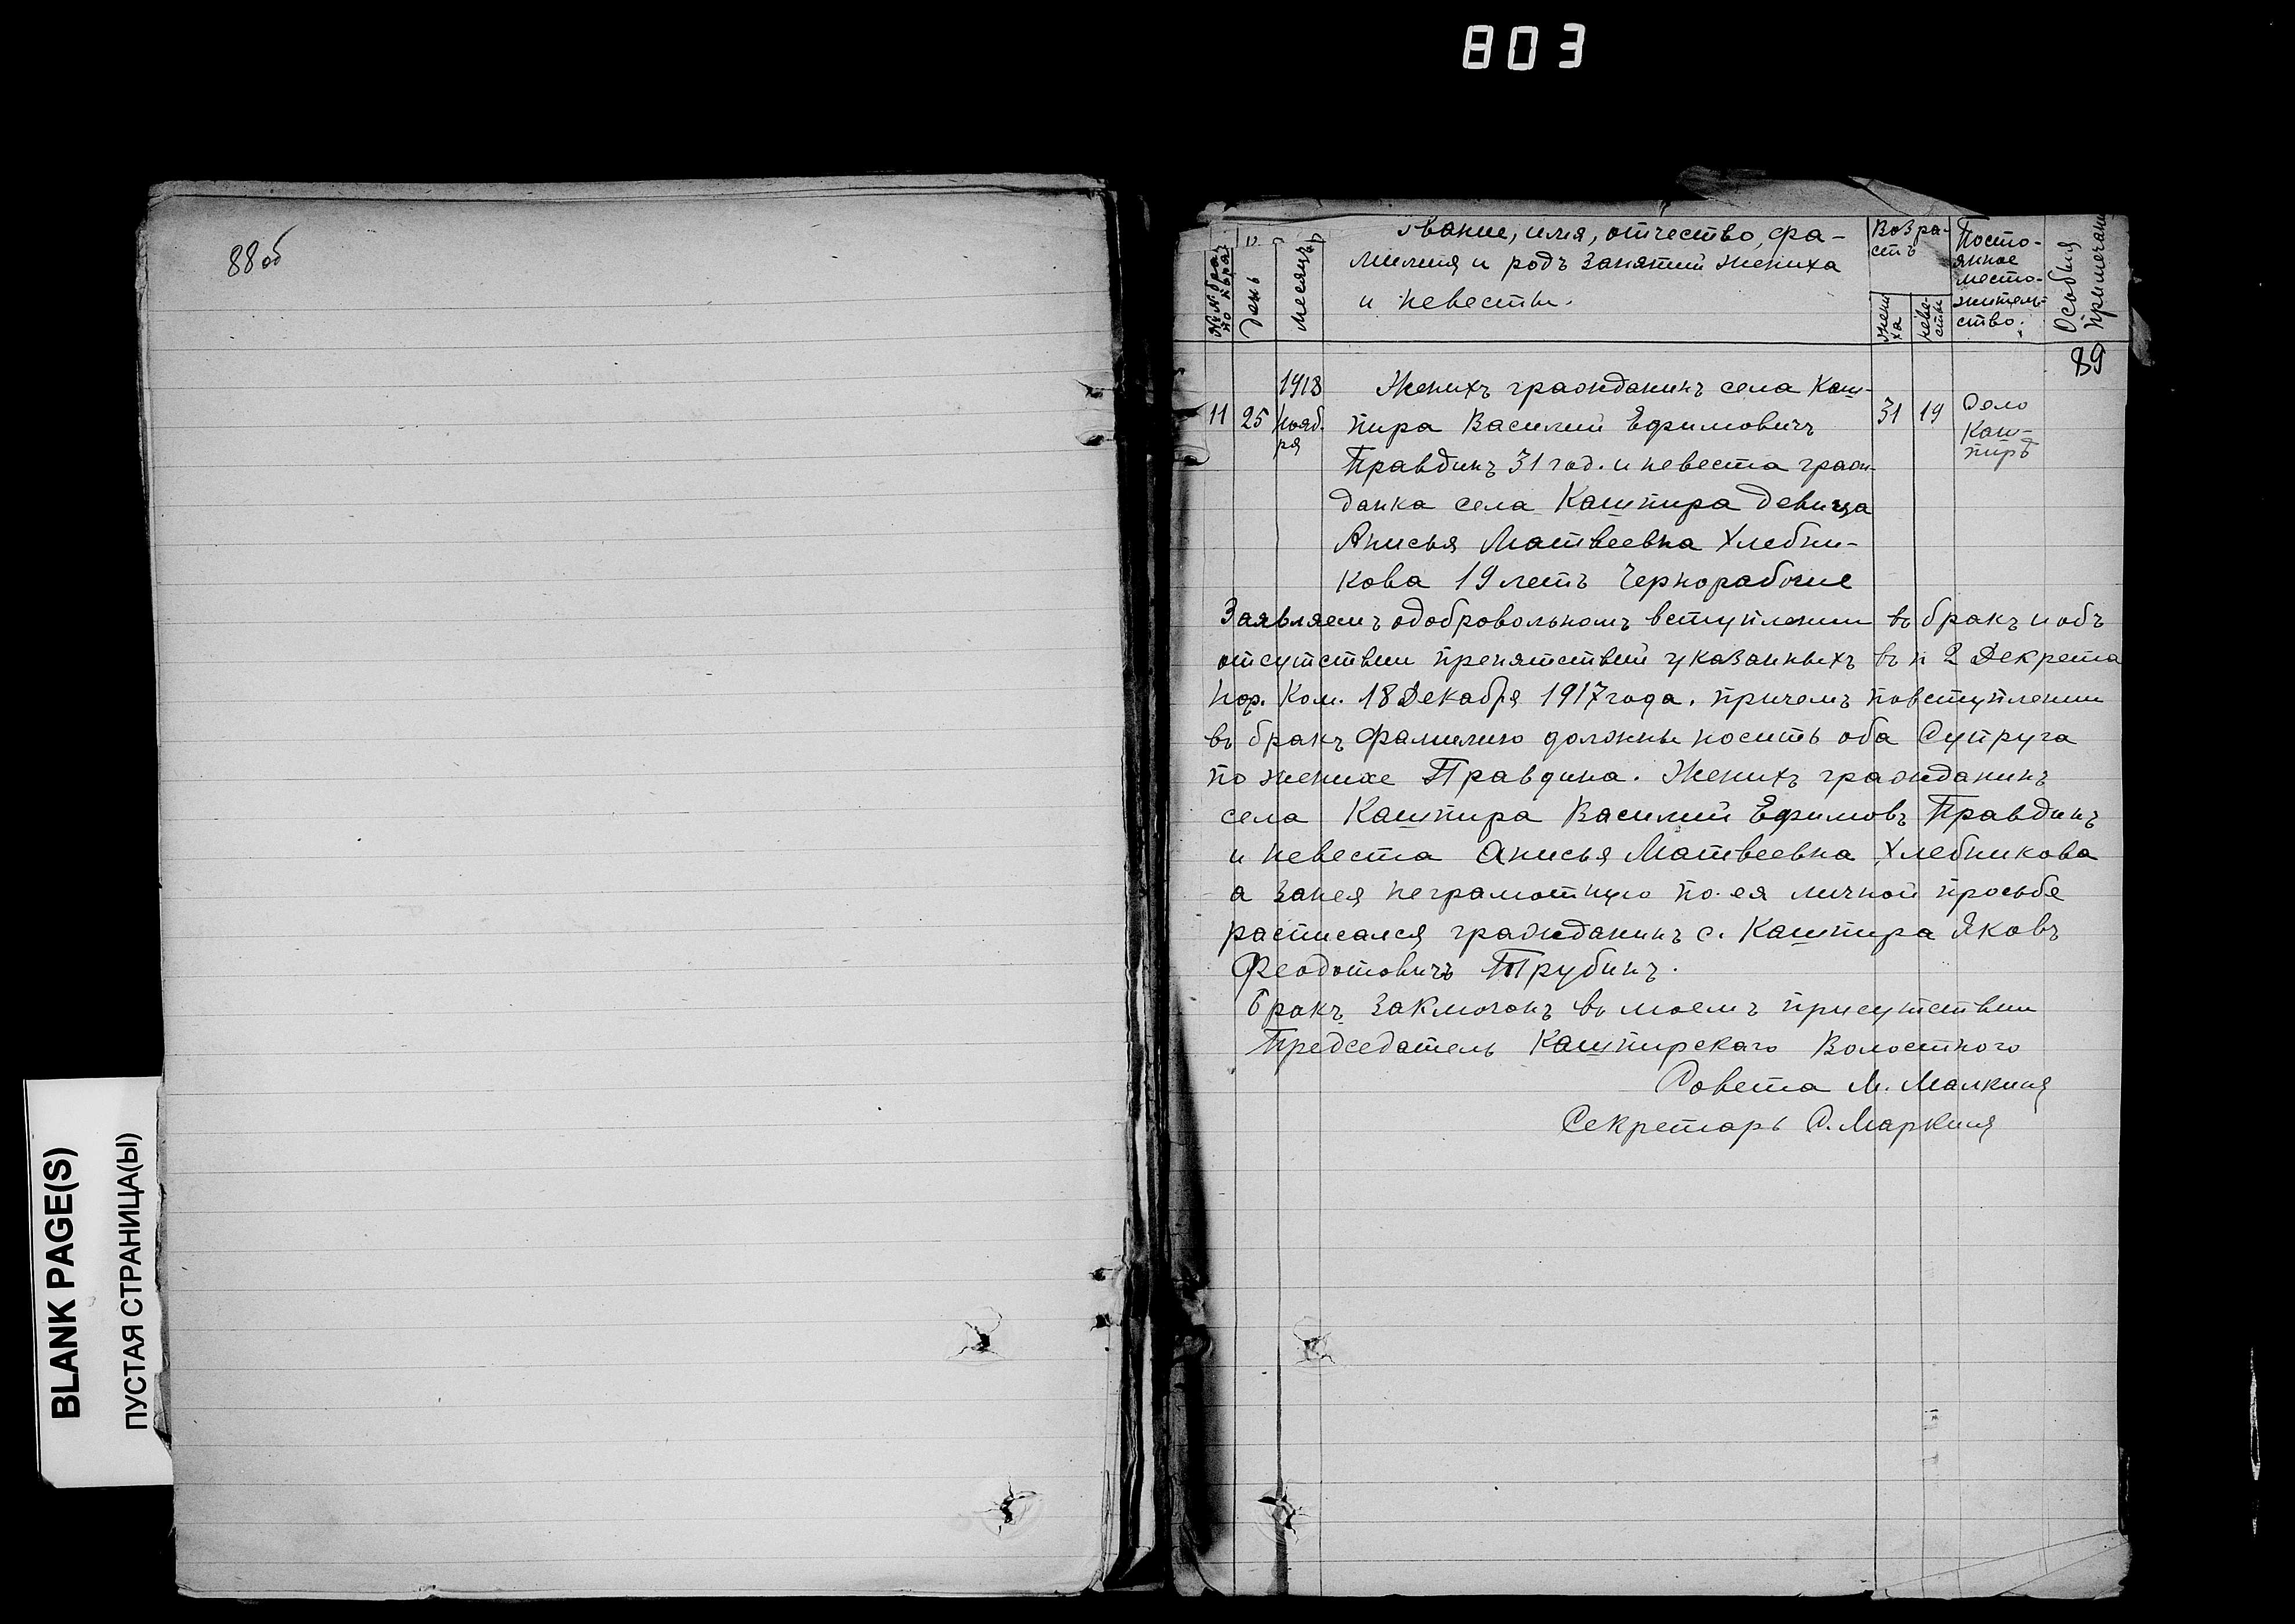 803
88 об
BLANK PAGE(S)
ПУСТАЯ СТРАНИЦА(Ы)
День
Месяцъ
Звание, имя, отчество, фа-
милия и родъ занятий жениха
и невесты.
Возра-
стъ
жени
ха
неве-
сты
Посто-
янное
место-
житель-
ство.
Особыя
примечан
89
11
25
1918
Нояб.
ря
Женихъ гражданинъ села Каш-
пира Василий Ефимовичъ
Правдинъ 31 год. и невеста граж-
данка села Кашпира девица
Анисья Матвеевна Хлебни-
кова 19 летъ Чернорабочие
31
19
Село
Каш-
пиръ
Заявляемъ одобровольномъ вступлении въ бракъ и объ
отсутствии препятствий указанныхъ въ п 2 Декрета
Нар. Ком. 18 Декабря 1917 года. причемъ повступлении
въ бракъ фамилию должны носить оба Супруга
по женихе Правдина. Женихъ гражданинъ
села Кашпира Василий Ефимовъ Правдинъ
и невеста Анисья Матвеевна Хлебникова
а занея неграмотную по ея личной просьбе
расписался гражданинъ с. Кашпира Яковъ
Феодотовичъ Трубинъ.
Бракъ заключонъ въ моемъ присутствии
Председатель Кашпирскаго Волостного
Совета М. Малкинъ
Секретарь С. Маркинъ